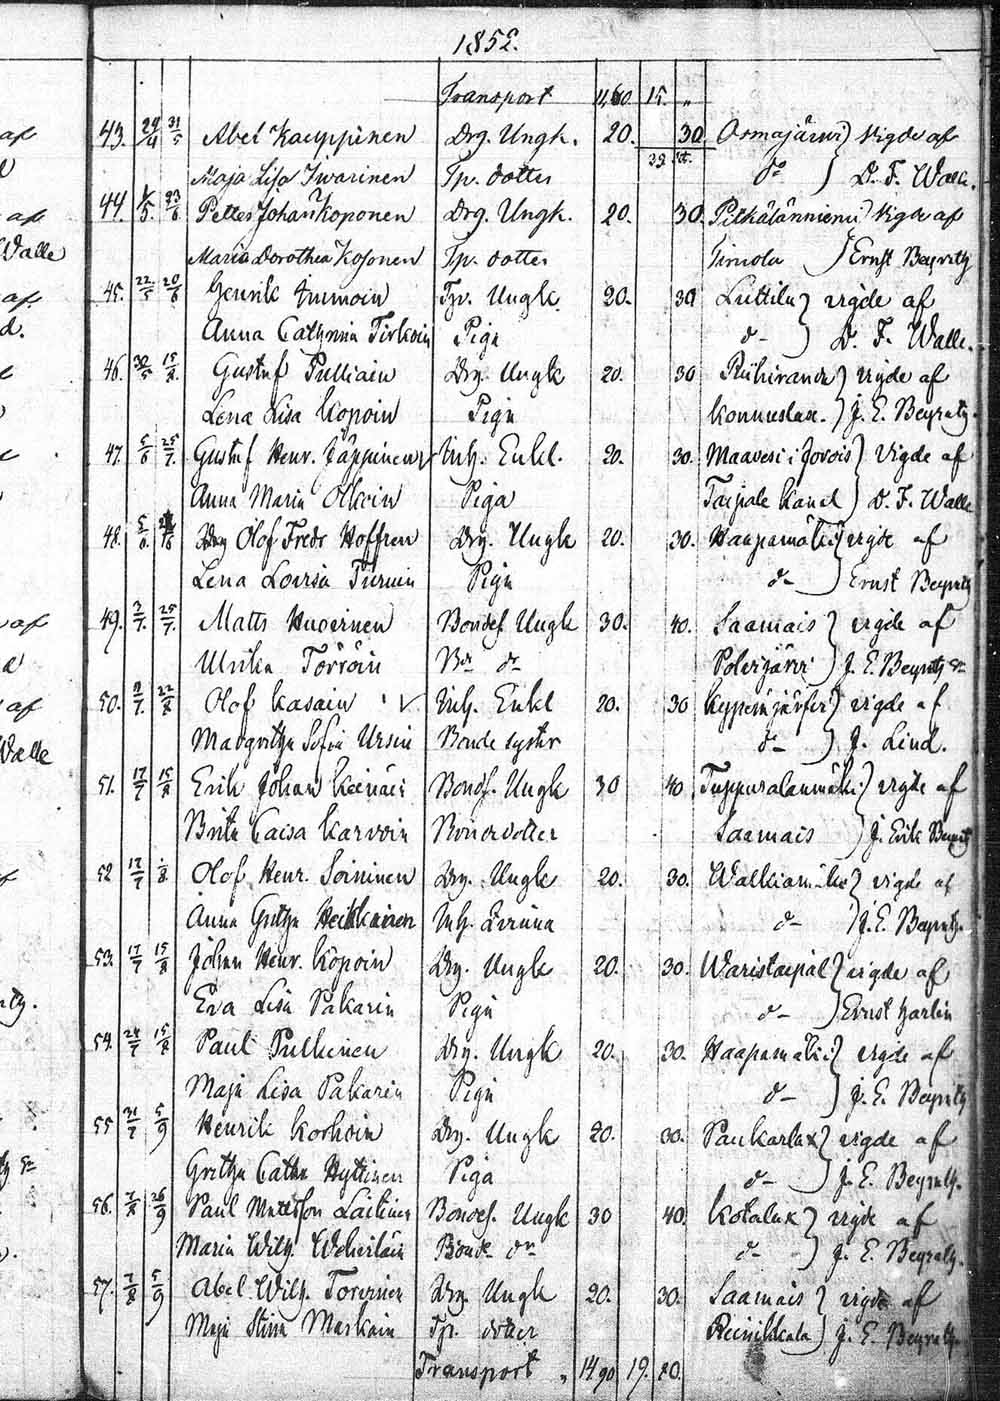 1852.
Transport 11,60. 15. „
43. 29/4 31/5 Abel Kauppinen Drg. Ungk. 20. 30 Osmajärvi) Vigde af
Maja Lisa Iwarinen Tp. dotter do ) D. F. Walle.
44 23/6 Petter Johan Koponen Drg. Ungk. 20. 30. Pitkälänniemi) Vigde af
Maria Dorothea Kosonen Tp. dotter ) Ernst Beyrath
45. 22/5 20/6 Henrik Immoin Tpr. Ungk. 20. 30 Luttila) vigde af
Anna Cathrina Tirkoin Piga d- ) D. F. Walle.
46. 30/5 Gustaf Pulliain Drg. Ungk 20. 30 Riihiranda) vigde af
Lena Lisa Kopoin Piga Konnuslax. ) J. E. Beyrath.
47. 5/6 25/7. Gustaf Henr. Jäppinen Inh. Enkl. 20. 30. Maavesi i Jorois) Vigde af
Anna Maria Olkoin Piga Taipale Kanal ) D. F. Walle
48. 5/6. Olof Fredr Hoffren Drg. Ungk 20. 30. Haapamäki) vigde af
Lena Lovisa Turuin Piga d- ) Ernst Beyrath
49. 25/7. Matts Huovinen Bondes. Ungk 30. 40. Saamais ) vigde af
Ulrika Törröin do Polvijärvi ) J. E. Beyrath
50. 22/8 Olof Kasain V Inh. Enkl 20. 30 ) vigde af
Margretha Sofia Ursin Bonde syster d- ) J. Lind.
51. 17/7 15/8 Erik Johan Keinäin Bondes. Ungk 30 40 Tuppuralanmäki) vigde af
Brita Caisa Karvoin Bondedotter Saamais ) J. Erik Beyrath
52 17/7 Olof Henr. Soininen Drg. Ungk 20. 30. Walkiamäki) vigde af
Anna Gretha Heikkainen Inh. d- ) J. E. Beyrath.
53. 17/7 15/8 Johan Henr. Kopoin Drg. Ungk 20. 30. Waristaipal) vigde af
Eva Lisa Pakarin Piga d- ) Ernst Harlin
54. 24/7 15/8 Paul Pulkinen Drg. Ungk 20. 30. Haapamäki) vigde af
Maja Lisa Pakarin Piga d- ) J. E. Beyrath
55 31/7 5/9 Henrik Korhoin Drg. Ungk 20. 30. Paukarlax) vigde af
Gretha Catha Hyttinen Piga d- ) J. E. Beyrath.
56. 26/9 Paul Mattsson Laitinen Bondes. Ungk 30 40. Kotalax ) vigde af
Maria Wilh. Weherläin Bonde dr d- ) J. E. Beyrath.
57. 7/8 5/9 Abel Wilh. Torvinen Drg. Ungk 20. 30. Saamais ) vigde af
Maja Stina Markain Tp. dotter Reinikkala) J. E. Beyrath.
Transport „ 14 90 19. 20.